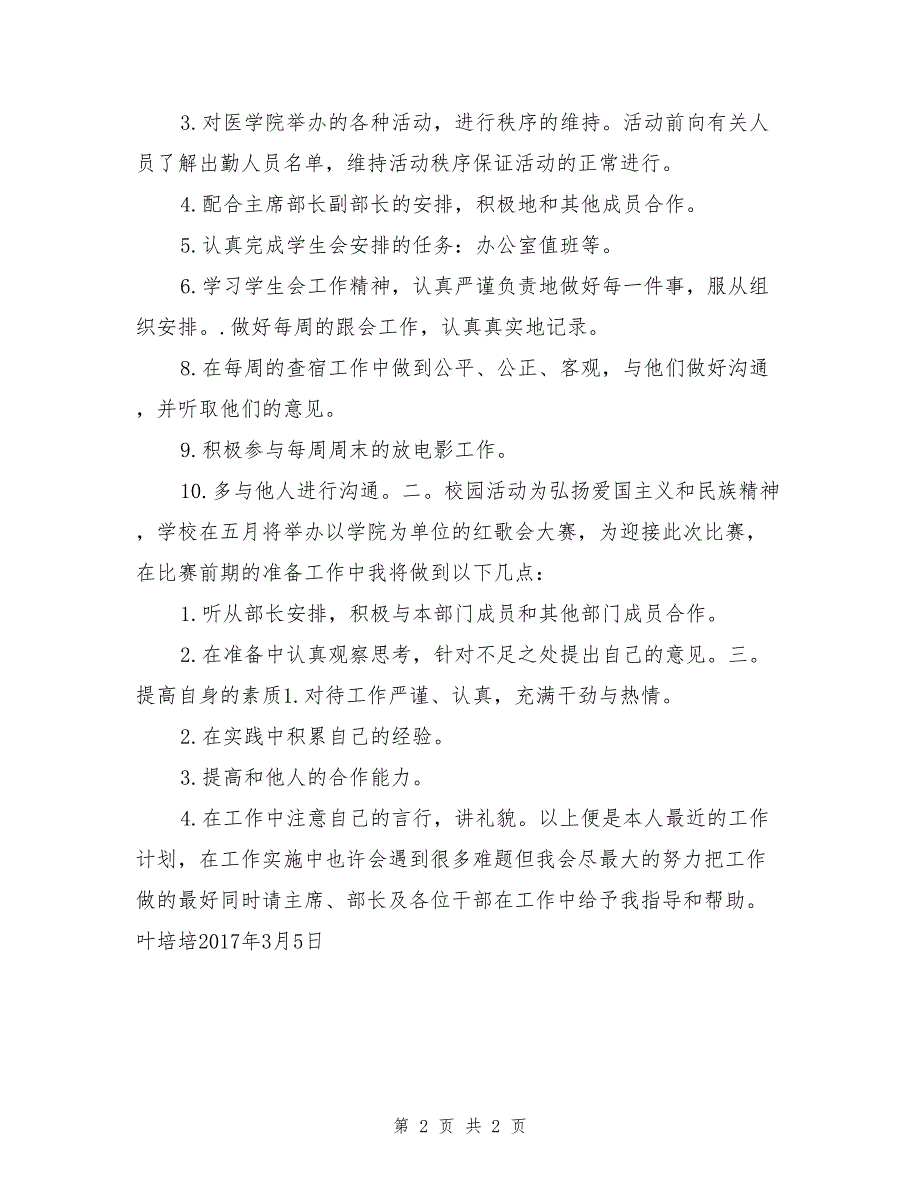 3.对医学院举办的各种活动，进行秩序的维持。活动前向有关人
员了解出勤人员名单，维持活动秩序保证活动的正常进行。
4.配合主席部长副部长的安排，积极地和其他成员合作。
5.认真完成学生会安排的任务：办公室值班等。
6.学习学生会工作精神，认真严谨负责地做好每一件事，服从组
织安排。.做好每周的跟会工作，认真真实地记录。
8.在每周的查宿工作中做到公平、公正、客观，与他们做好沟通
，并听取他们的意见。
9.积极参与每周周末的放电影工作。
10.多与他人进行沟通。二。校园活动为弘扬爱国主义和民族精神
，学校在五月将举办以学院为单位的红歌会大赛，为迎接此次比赛，
在比赛前期的准备工作中我将做到以下几点：
1.听从部长安排，积极与本部门成员和其他部门成员合作。
2.在准备中认真观察思考，针对不足之处提出自己的意见。三。
提高自身的素质1.对待工作严谨、认真，充满干劲与热情。
2.在实践中积累自己的经验。
3.提高和他人的合作能力。
4.在工作中注意自己的言行，讲礼貌。以上便是本人最近的工作
计划，在工作实施中也许会遇到很多难题但我会尽最大的努力把工作
做的最好同时请主席、部长及各位干部在工作中给予我指导和帮助。
叶培培2017年3月5日
第 2 页 共 2 页